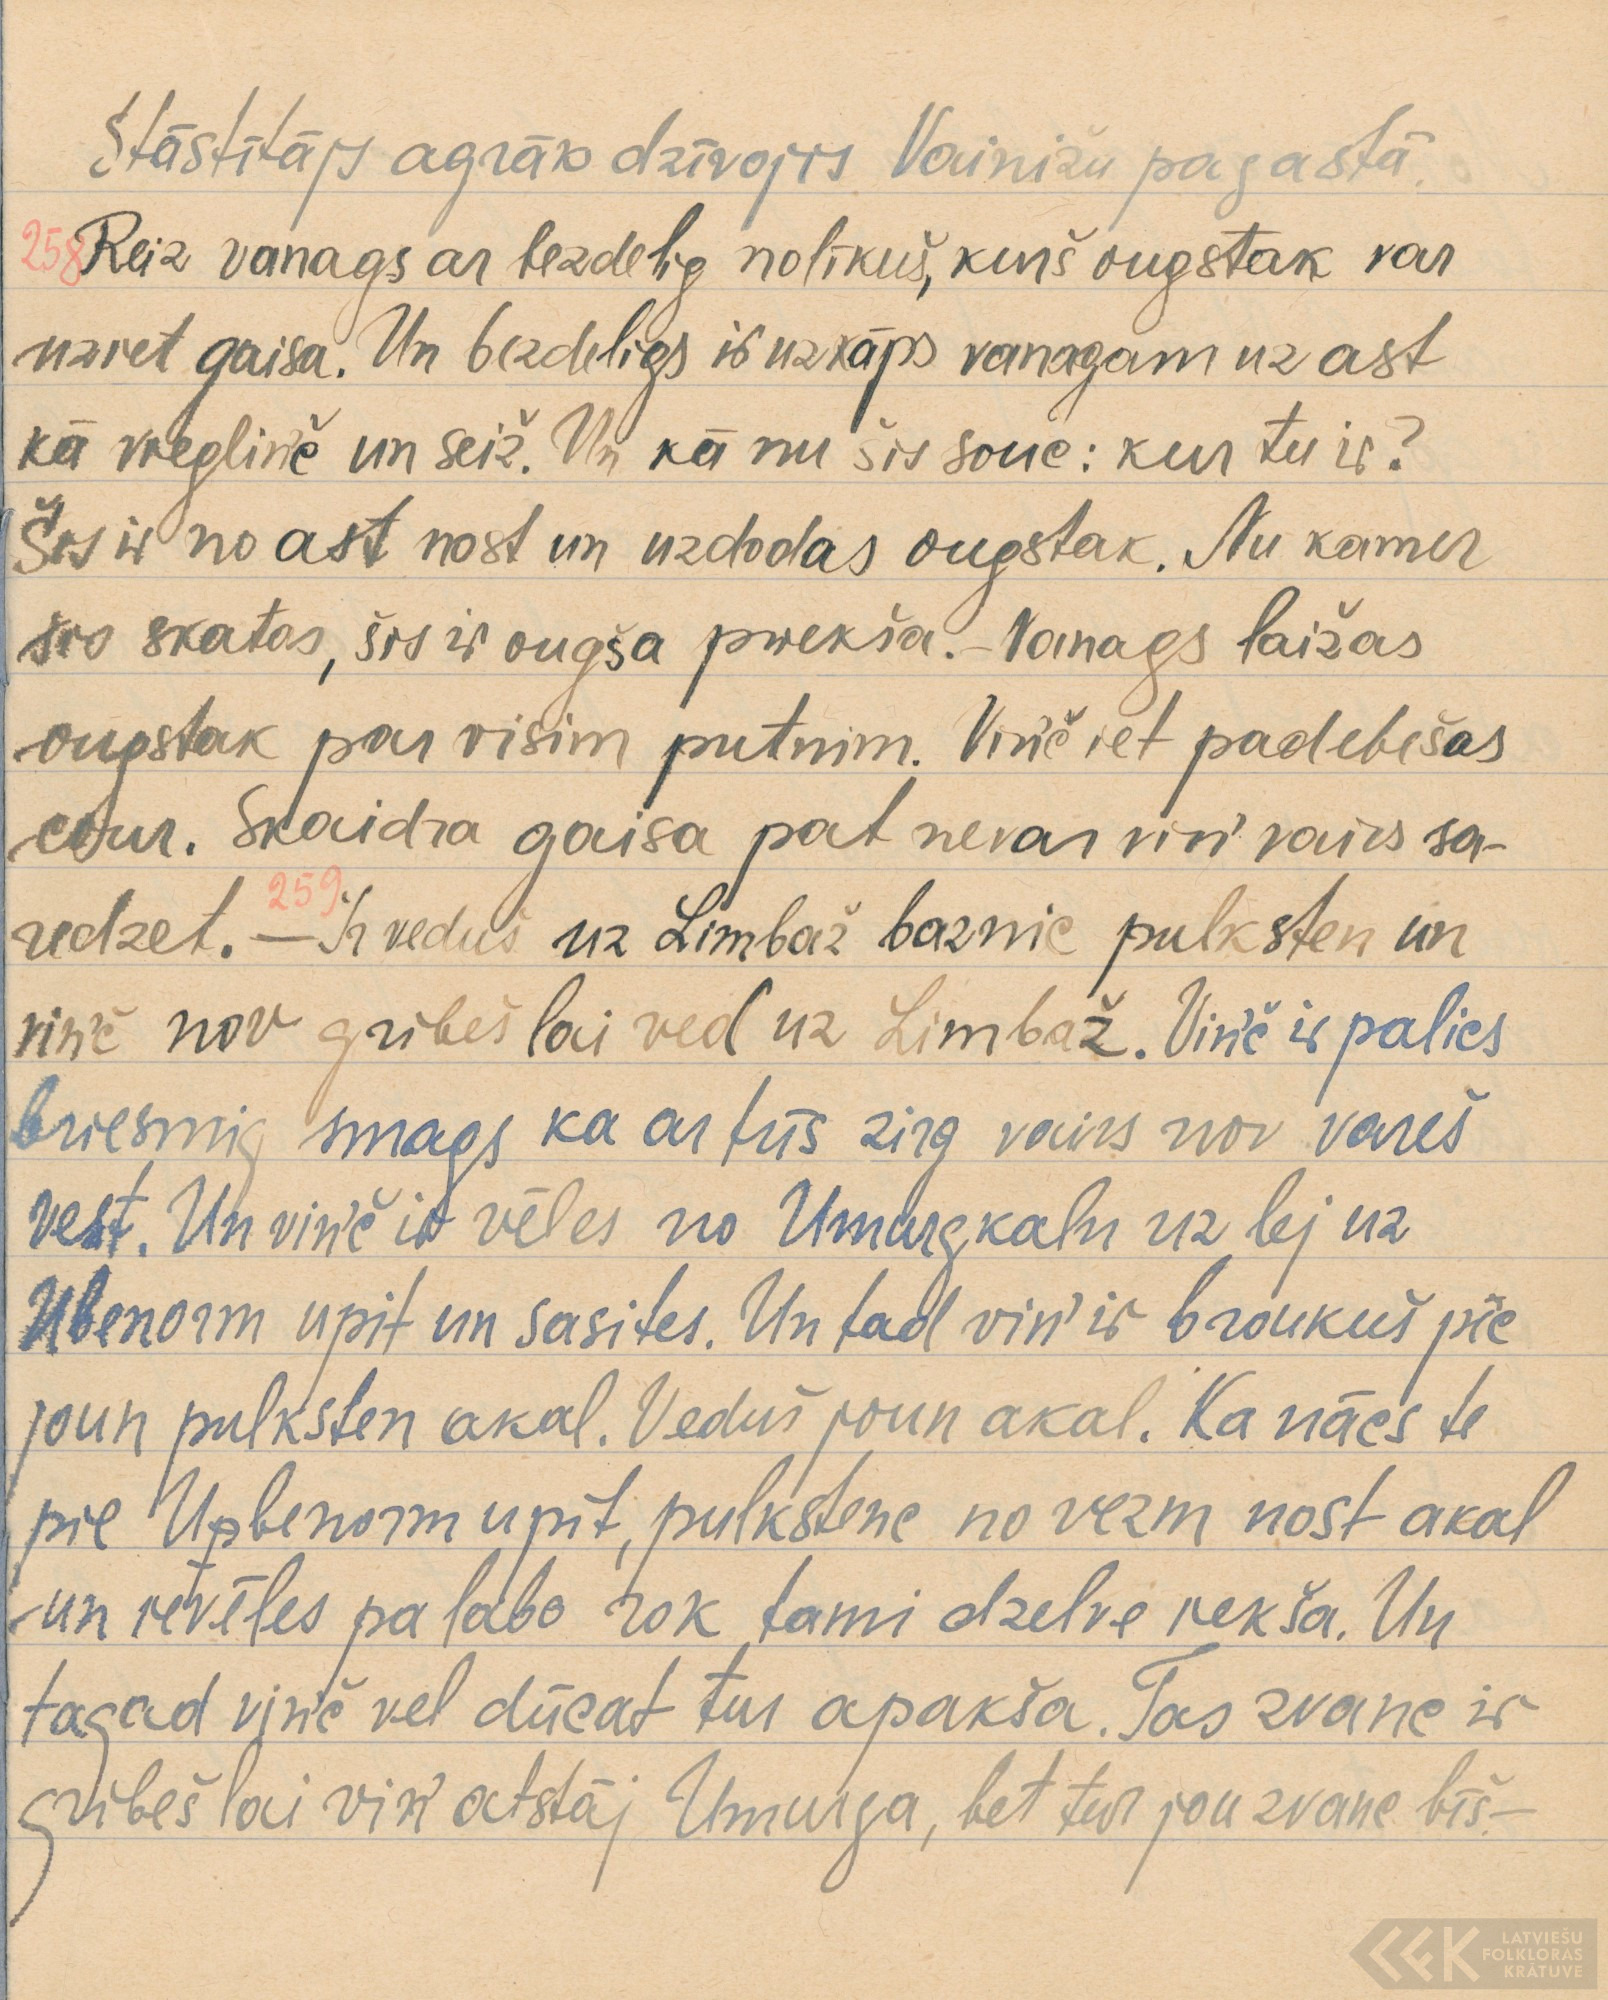 Stāstītājs agrāk dzīvojis Vainižu pagastā.
258 Reiz vanags ar bezdelig nolīkuš, kurš ougstak var
uzret gaisa. Un bezdeligs ir uzkāps vanagam uz ast
kā vieglinč un seiž. Un kā nu šis souc: kur tu ir?
Šis ir no ast nost un uzdodas ougstak. Nu kamer
šis skatas, šis ir ougša priekša. – Vanags laižas
ougstak par visim putnim. Vinč iet padebešas
cour. Skaidra gaisa pat nevar viņ vairs sa-
redzet. – 259 Ir veduš uz Limbaž baznic pulksten un
vinč nov gribeš lai ved uz Limbaž. Vinč ir palics
briesmig smags ka ar tris zirg vairs nov vareš
vest. Un vinč ir vēles no Umurgkaln uz lej uz
Ubenorm upit un sasites. Un tad viņ ir broukuš pīe
joun pulksten akal. Veduš joun akal. Ka nācs te
pie Upbenorm upit, pulkstenc no vezm nost akal
un ievēles pa labo rok tami dzelve iekša. Un
tagad vinč vel dūcat tur apakša. Tas zvanc ir
gribeš lai viņ atstāj Umurga, bet tur jou zvanc bīš. –
LATVIEŠU
FOLKLORAS
KRĀTUVE